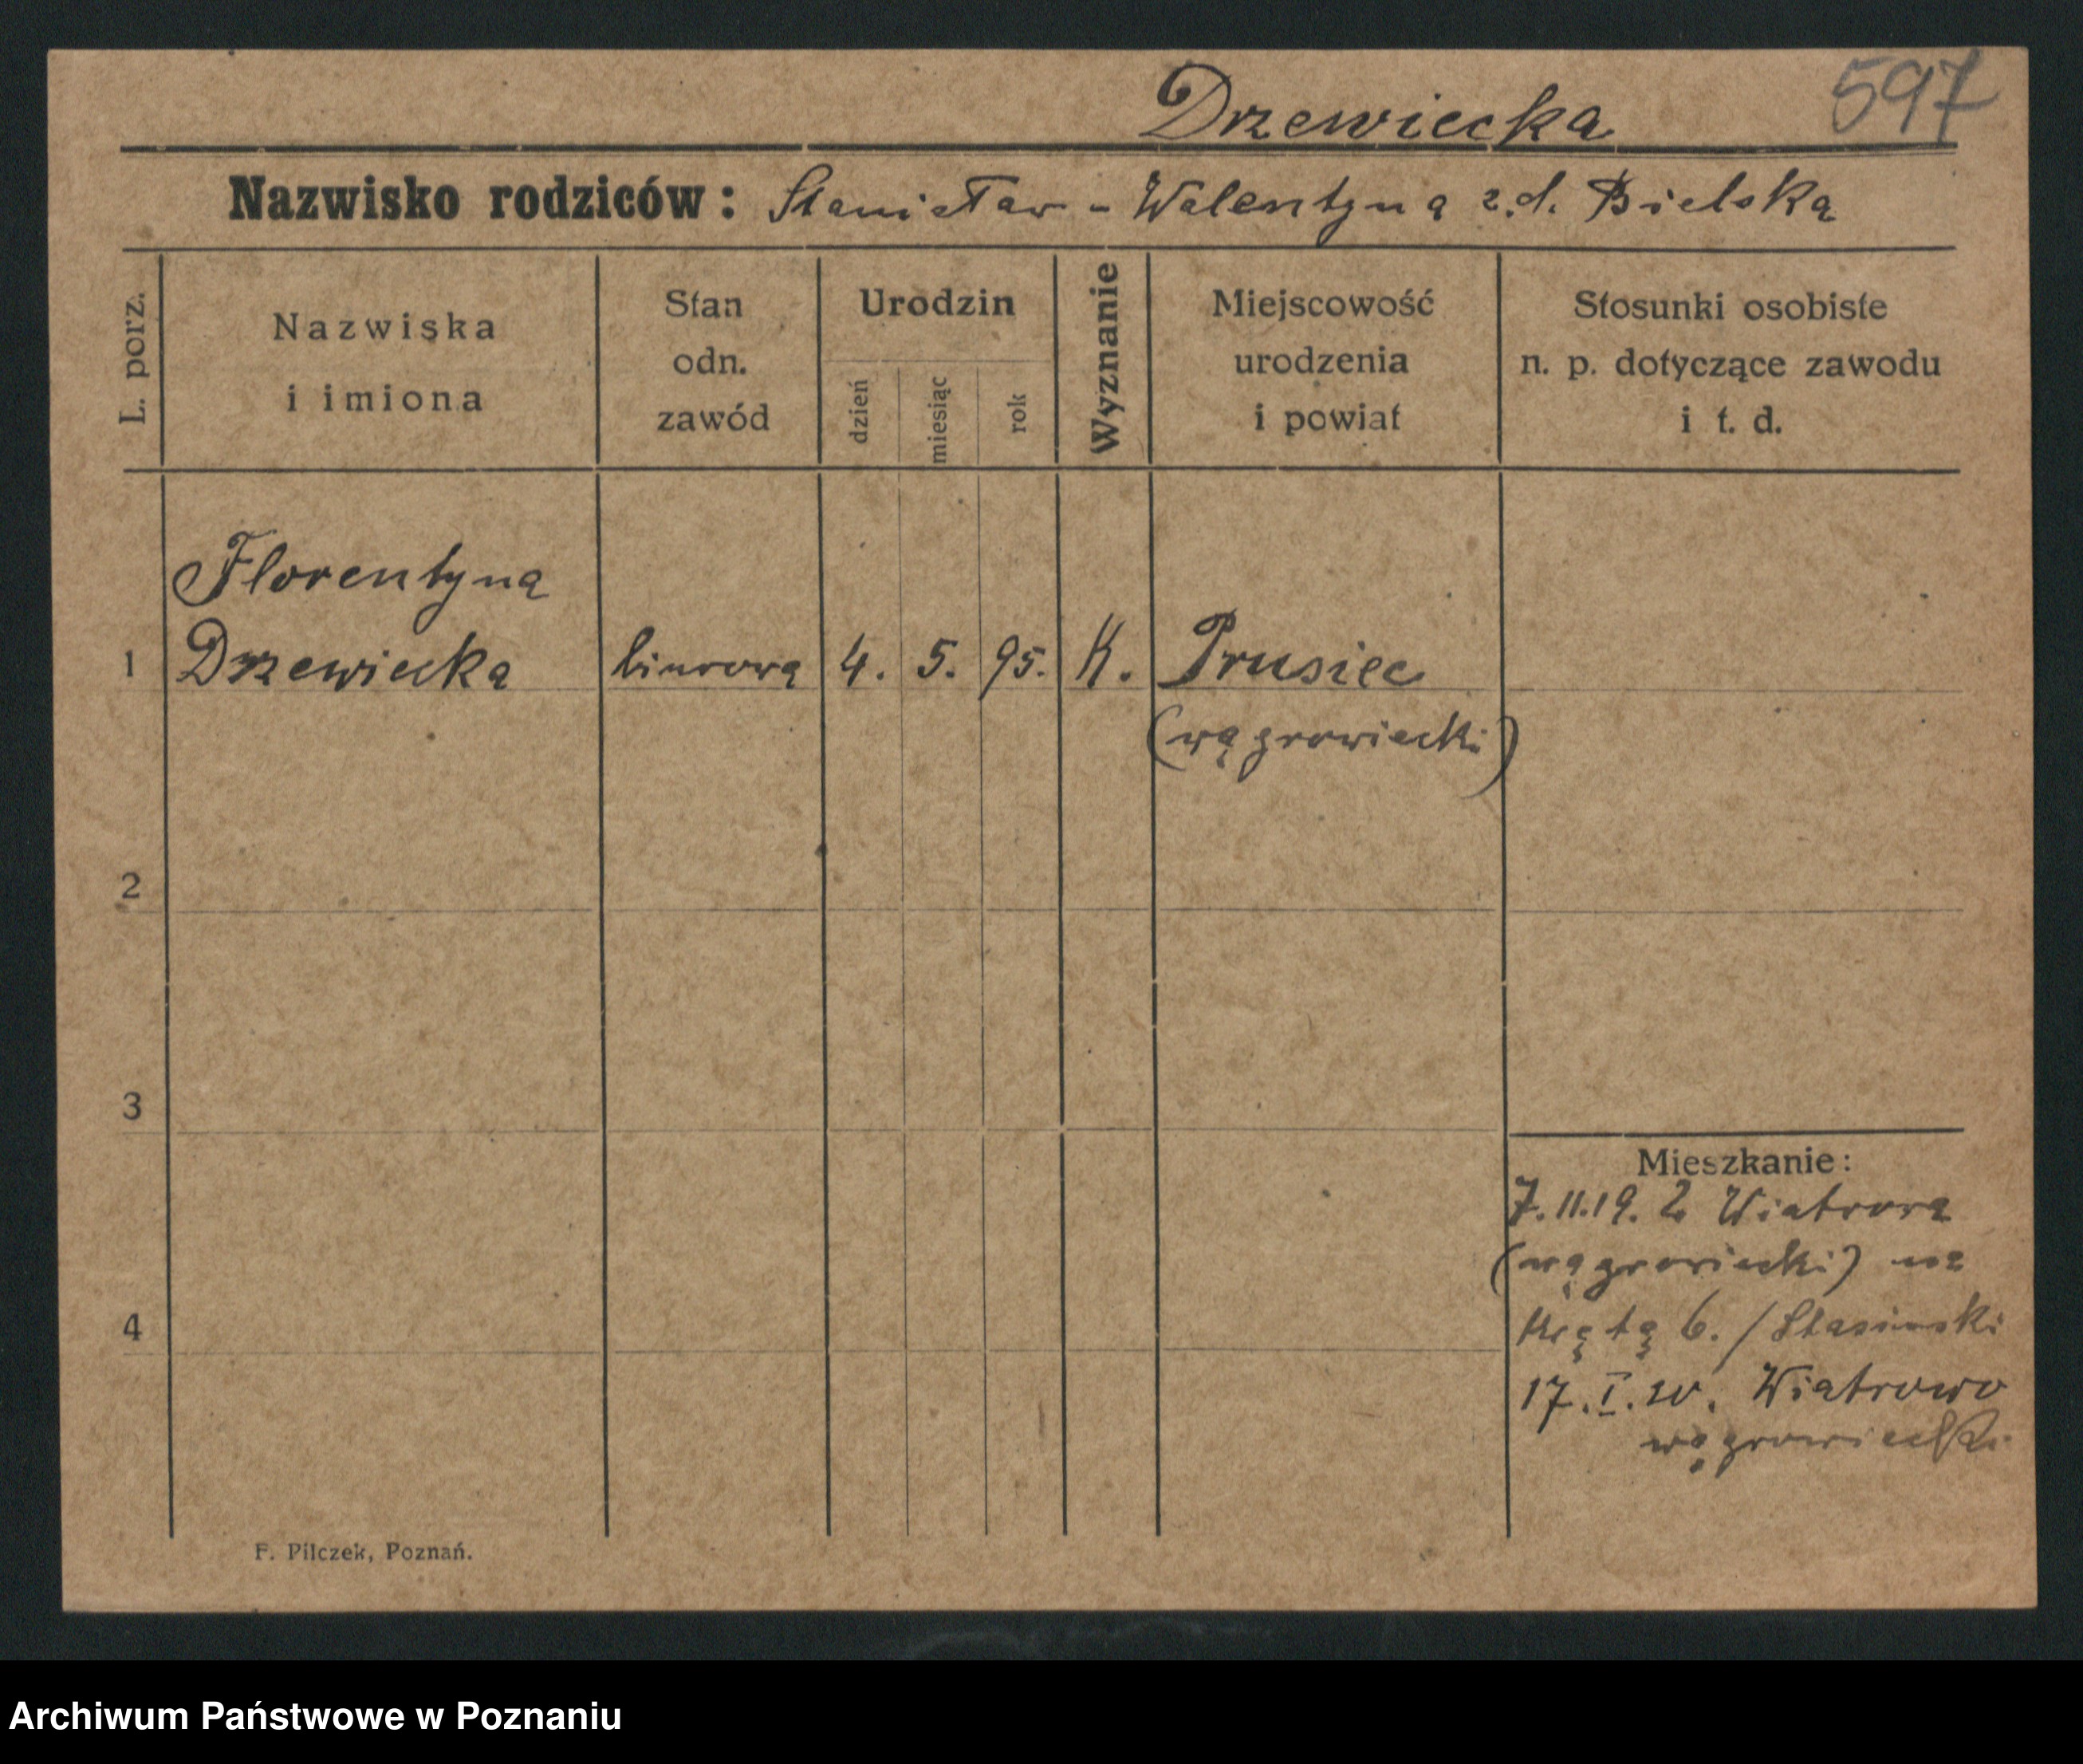 597
Drzewiecka
Nazwisko rodziców: Stanisław - Walentyna z.d. Bielska
L. porz.
Nazwiska
i imiona
Stan
odn.
zawód
Urodzin
dzień
miesiąc
rok
Wyznanie
Miejscowość
urodzenia
i powiat
Stosunki osobiste
n. p. dotyczące zawodu
i t. d.
Florentyna
1 Drzewiecka biurowa 4. 5. 95. K. Prusiec
(wągrowiecki)
2
3
4
Mieszkanie:
7.11.19. Z Wiatrowa
(wągrowiecki) na
Krętą 6. / Stasinski
17.I.20. Wiatrowo
wągrowiecki
F. Pilczek, Poznań.
Archiwum Państwowe w Poznaniu